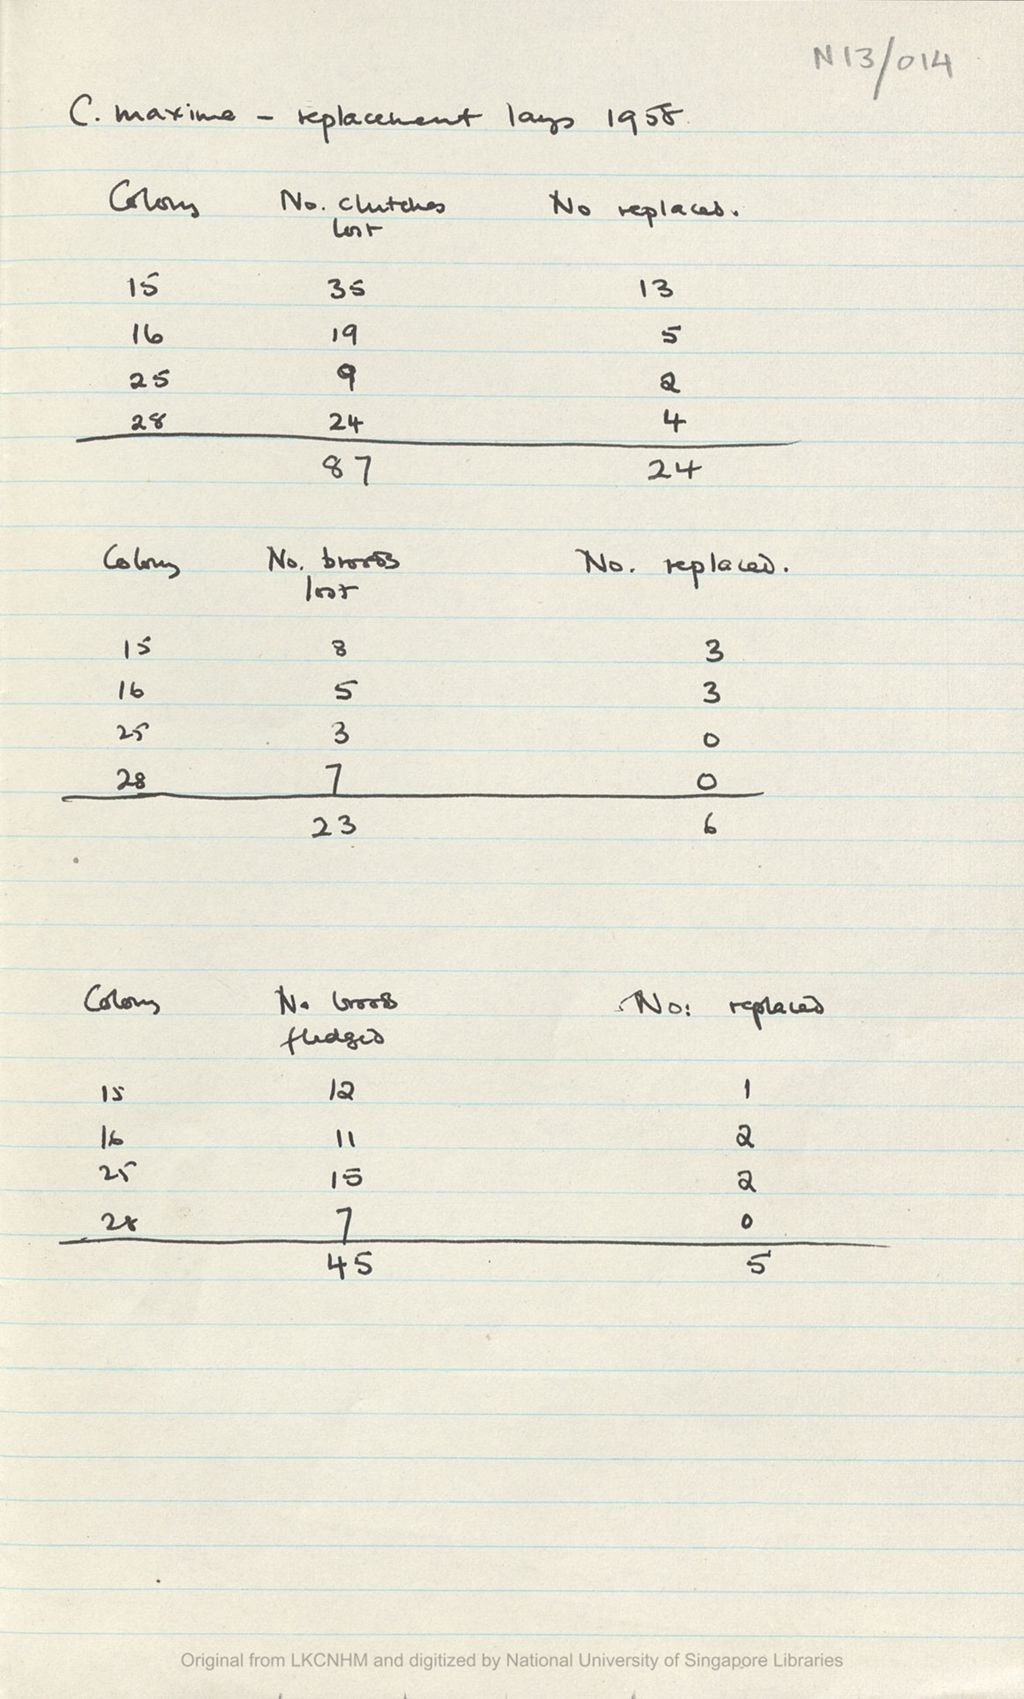 N13/014
C. maxima – replacement lays 1958
Colony No. clutches lost No replaced.
15 35 13
16 19 5
25 9 2
28 24 4
87 24
Colony No. broods lost No. replaced.
15 8 3
16 5 3
25 3 0
28 7 0
23 6
Colony No broods fledged No: replaced
15 12 1
16 11 2
25 15 2
28 7 0
45 5
Original from LKCNHM and digitized by National University of Singapore Libraries